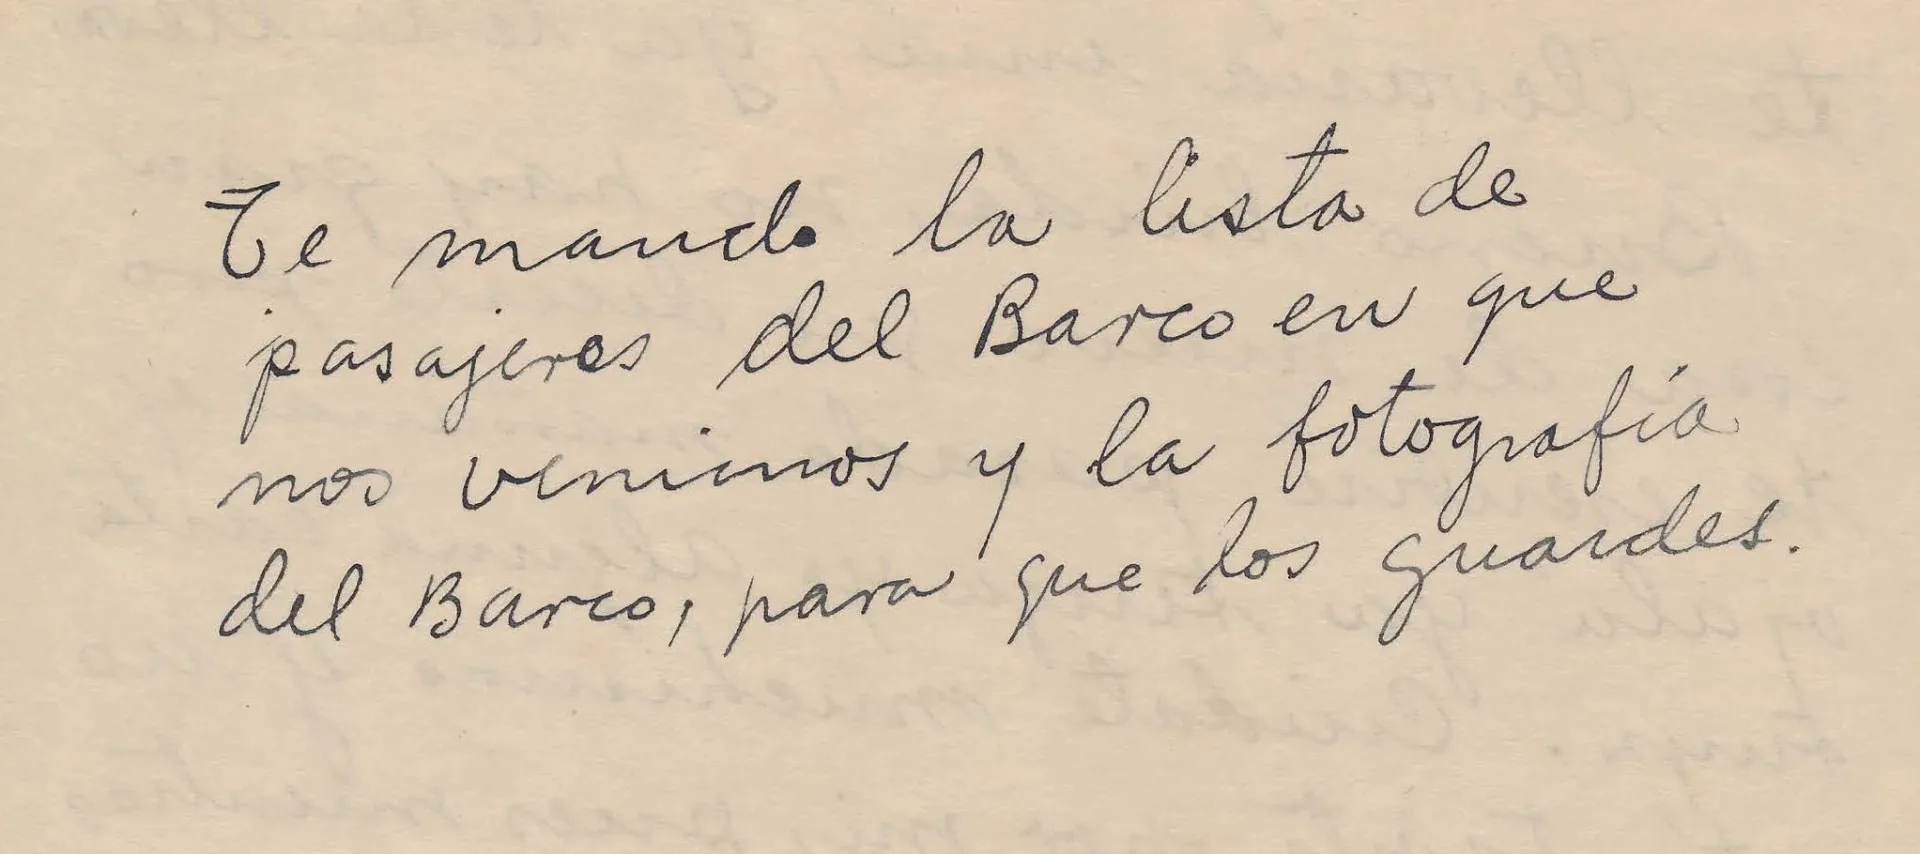 Te mando la lista de
pasajeros del Barco en que
nos venimos y la fotografía
del Barco, para que los guardes.